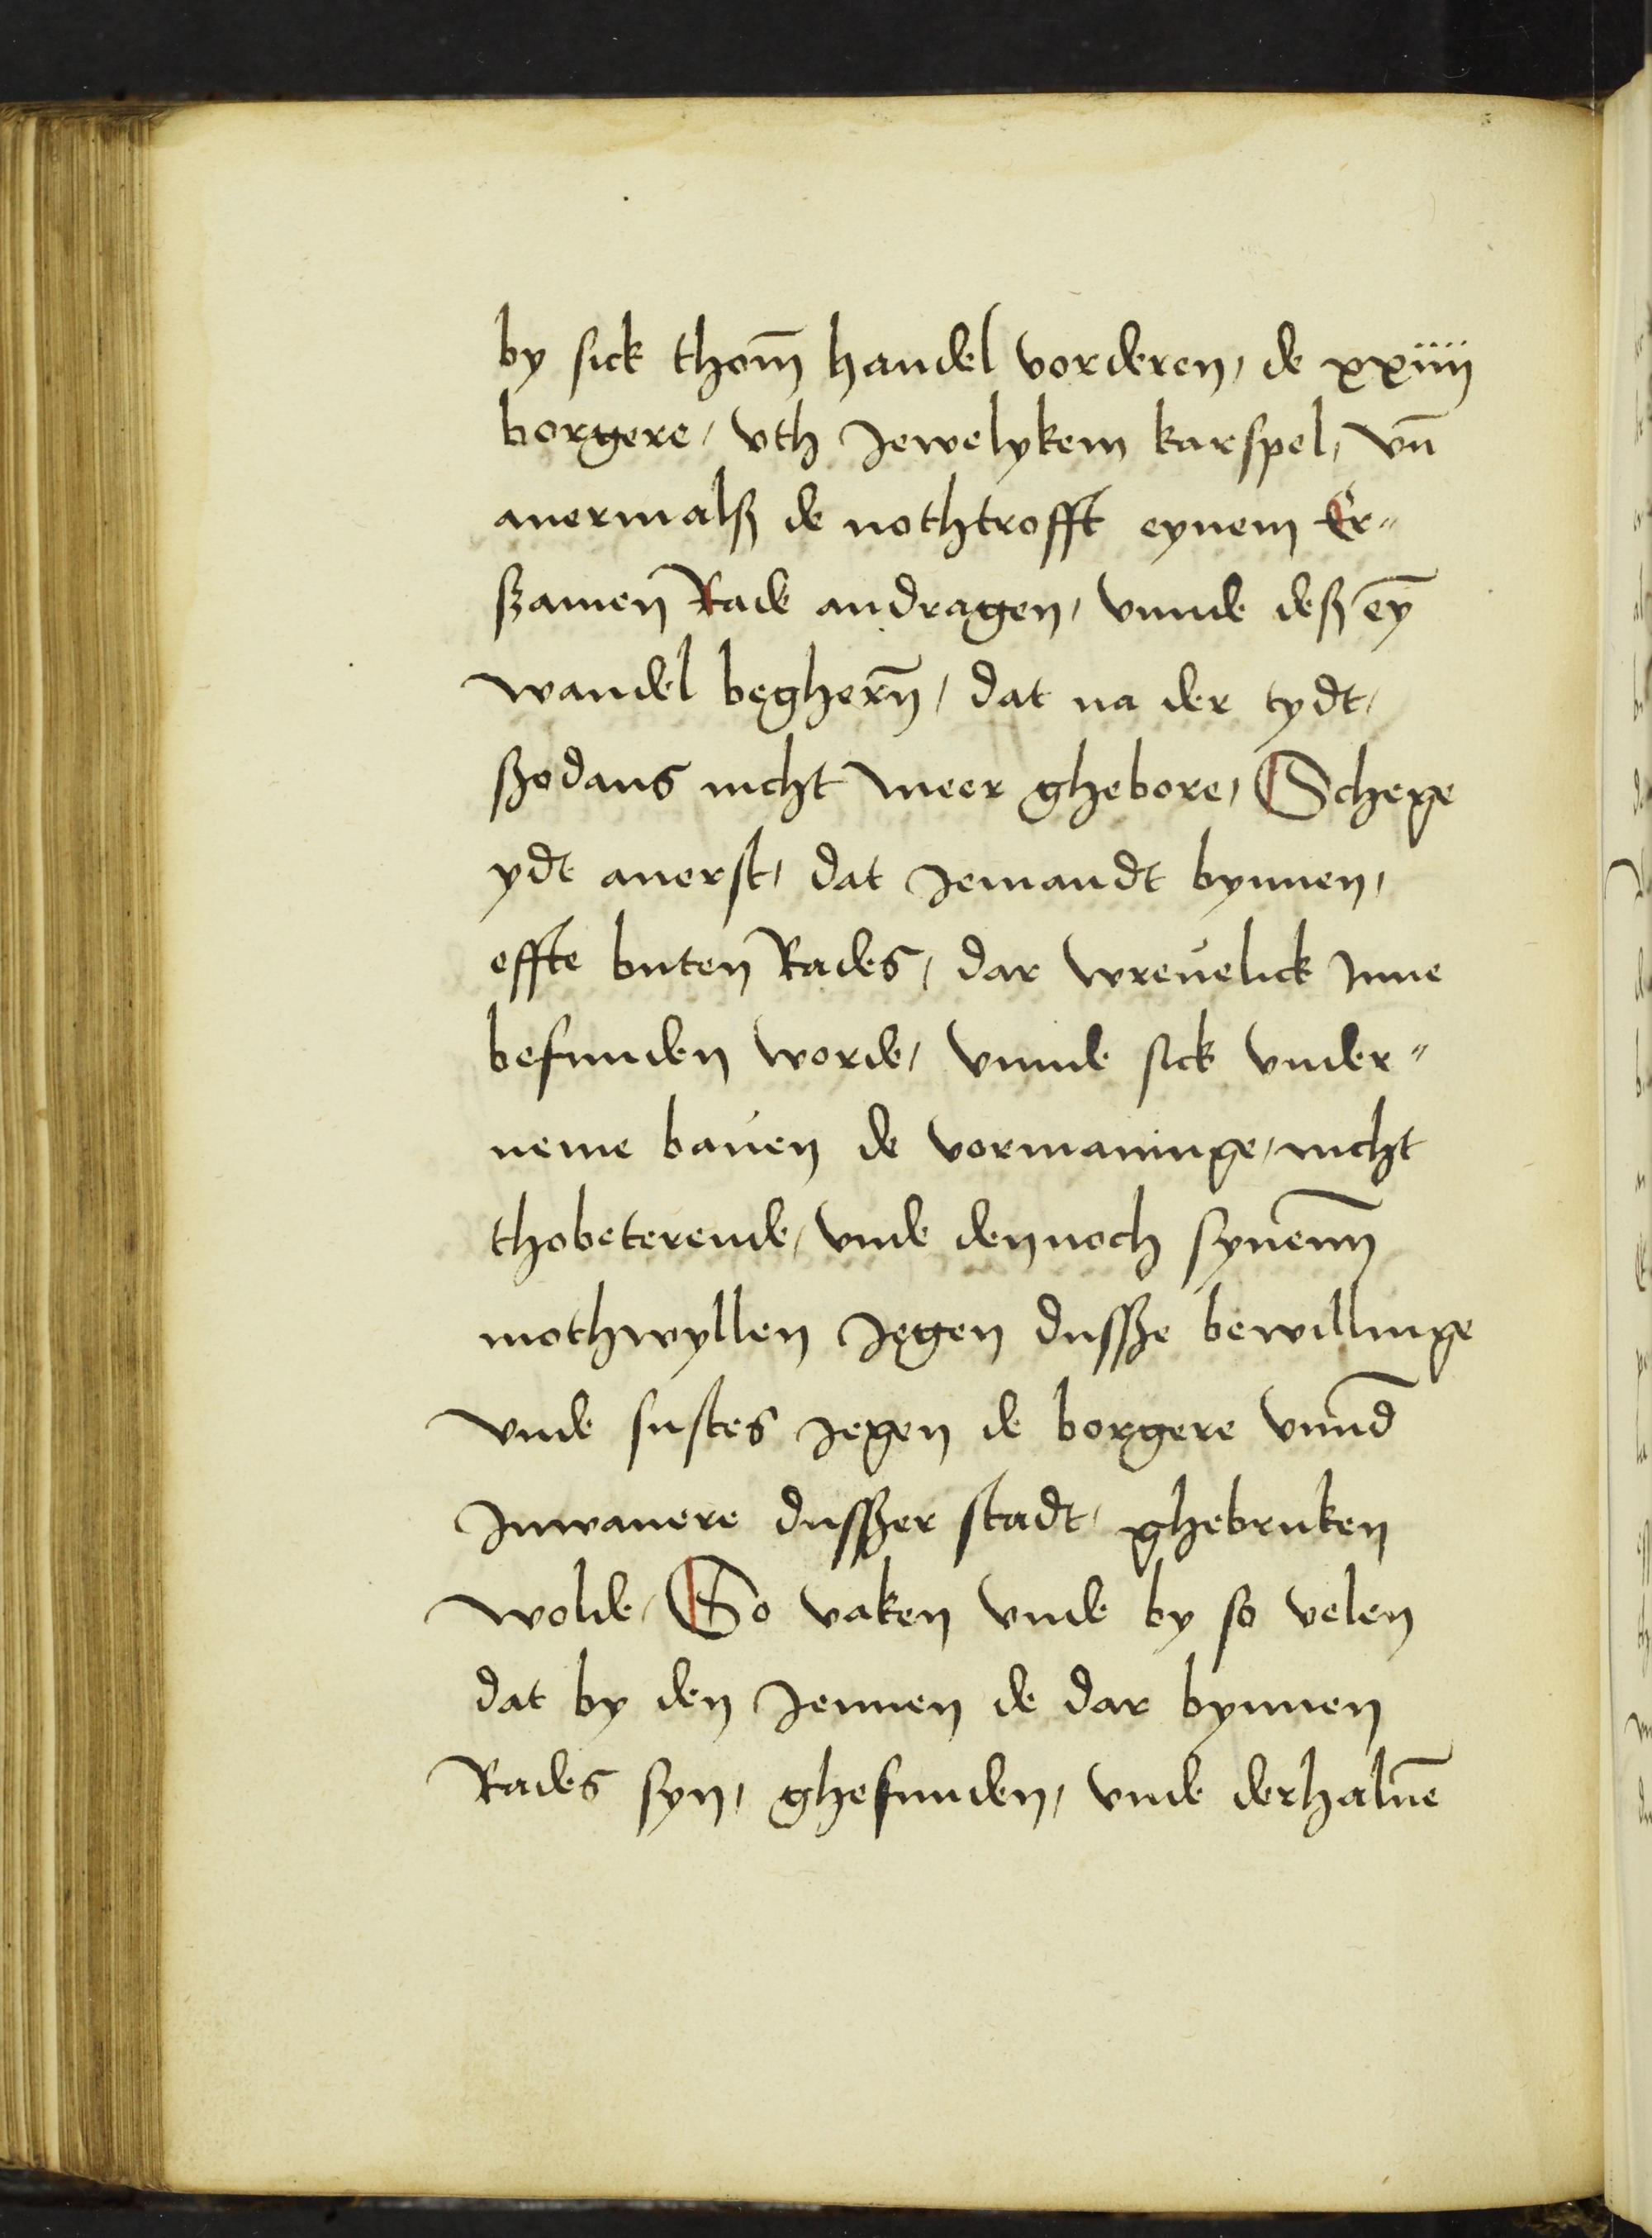 by sick thom̄ handel vorderen, de xxiiij
borgere, vth Jewelykem karspel, vn̄
auermalß de nothtrofft eynem Er⸗
ßamen Rade andragen, vnnde deß eȳ
wandel beghern̄, dat na der tydt,
ßodans nicht meer ghebore, Schege
ydt auerst, dat Jemandt bynnen,
effte buten Rades, dar wreuelick Inne
befunden worde, vnnde sick vnder⸗
neme bauen de vormaninge, nicht
thobeterende, vnde dennoch synenn̄
mothwyllen Jegen dusße bewillinge
vnde sustes Jegen de borgere vnnd̄
Inwanere dusßer stadt, ghebruken
wolde, So vaken vnde by so velen
dat by den Jennen de dar bynnen
Rades syn, ghefunden, vnde derhaluē